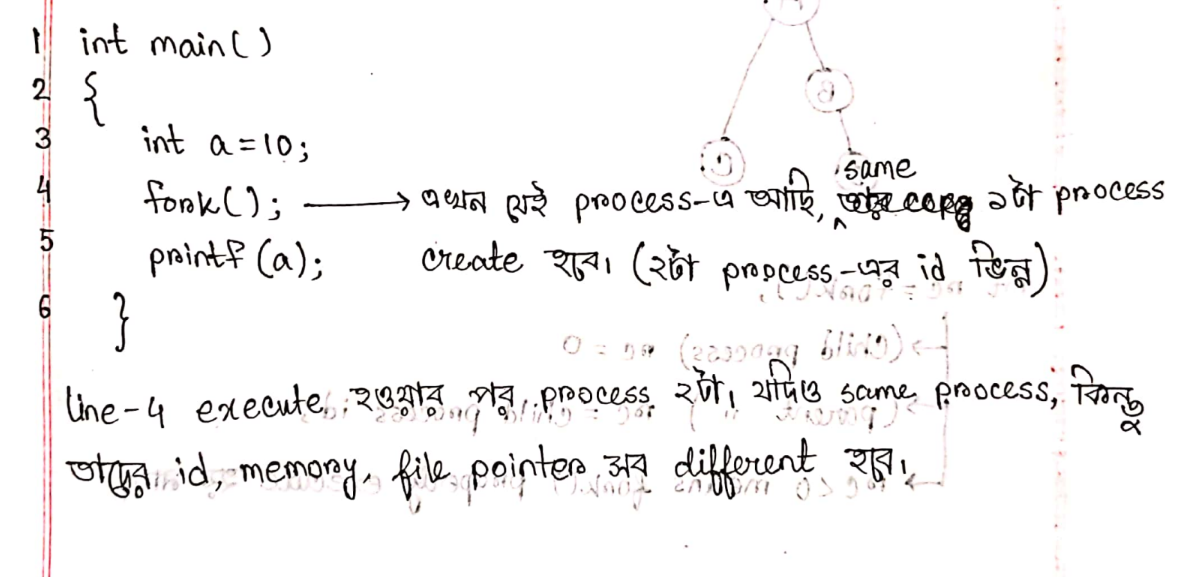 1 int main()
2 {
3 int a=10;
same
4 fork(); → এখন যেই process-এ আছি, ১টা process
5 printf (a); create হবে। (২টা process-এর id ভিন্ন)
6 }
line-4 execute হওয়ার পর process ২টা। যদিও same process, কিন্তু
তাদের id, memory, file pointer সব different হবে।